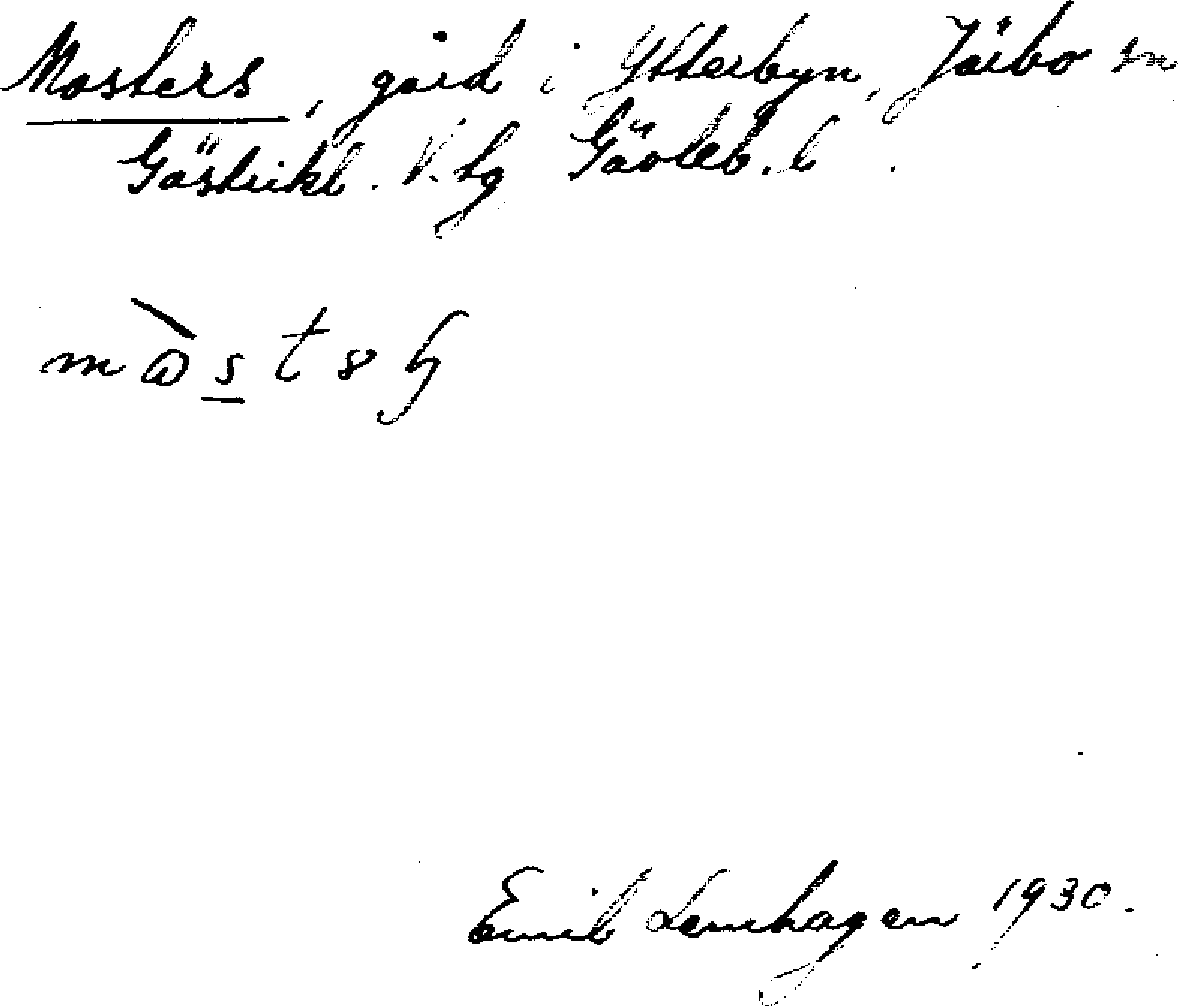 Mosters, gård i Ytterbyn, Järbo sn
Gästrikl. V. tg Gävleb. l.
Emil Lenhagen 1930.